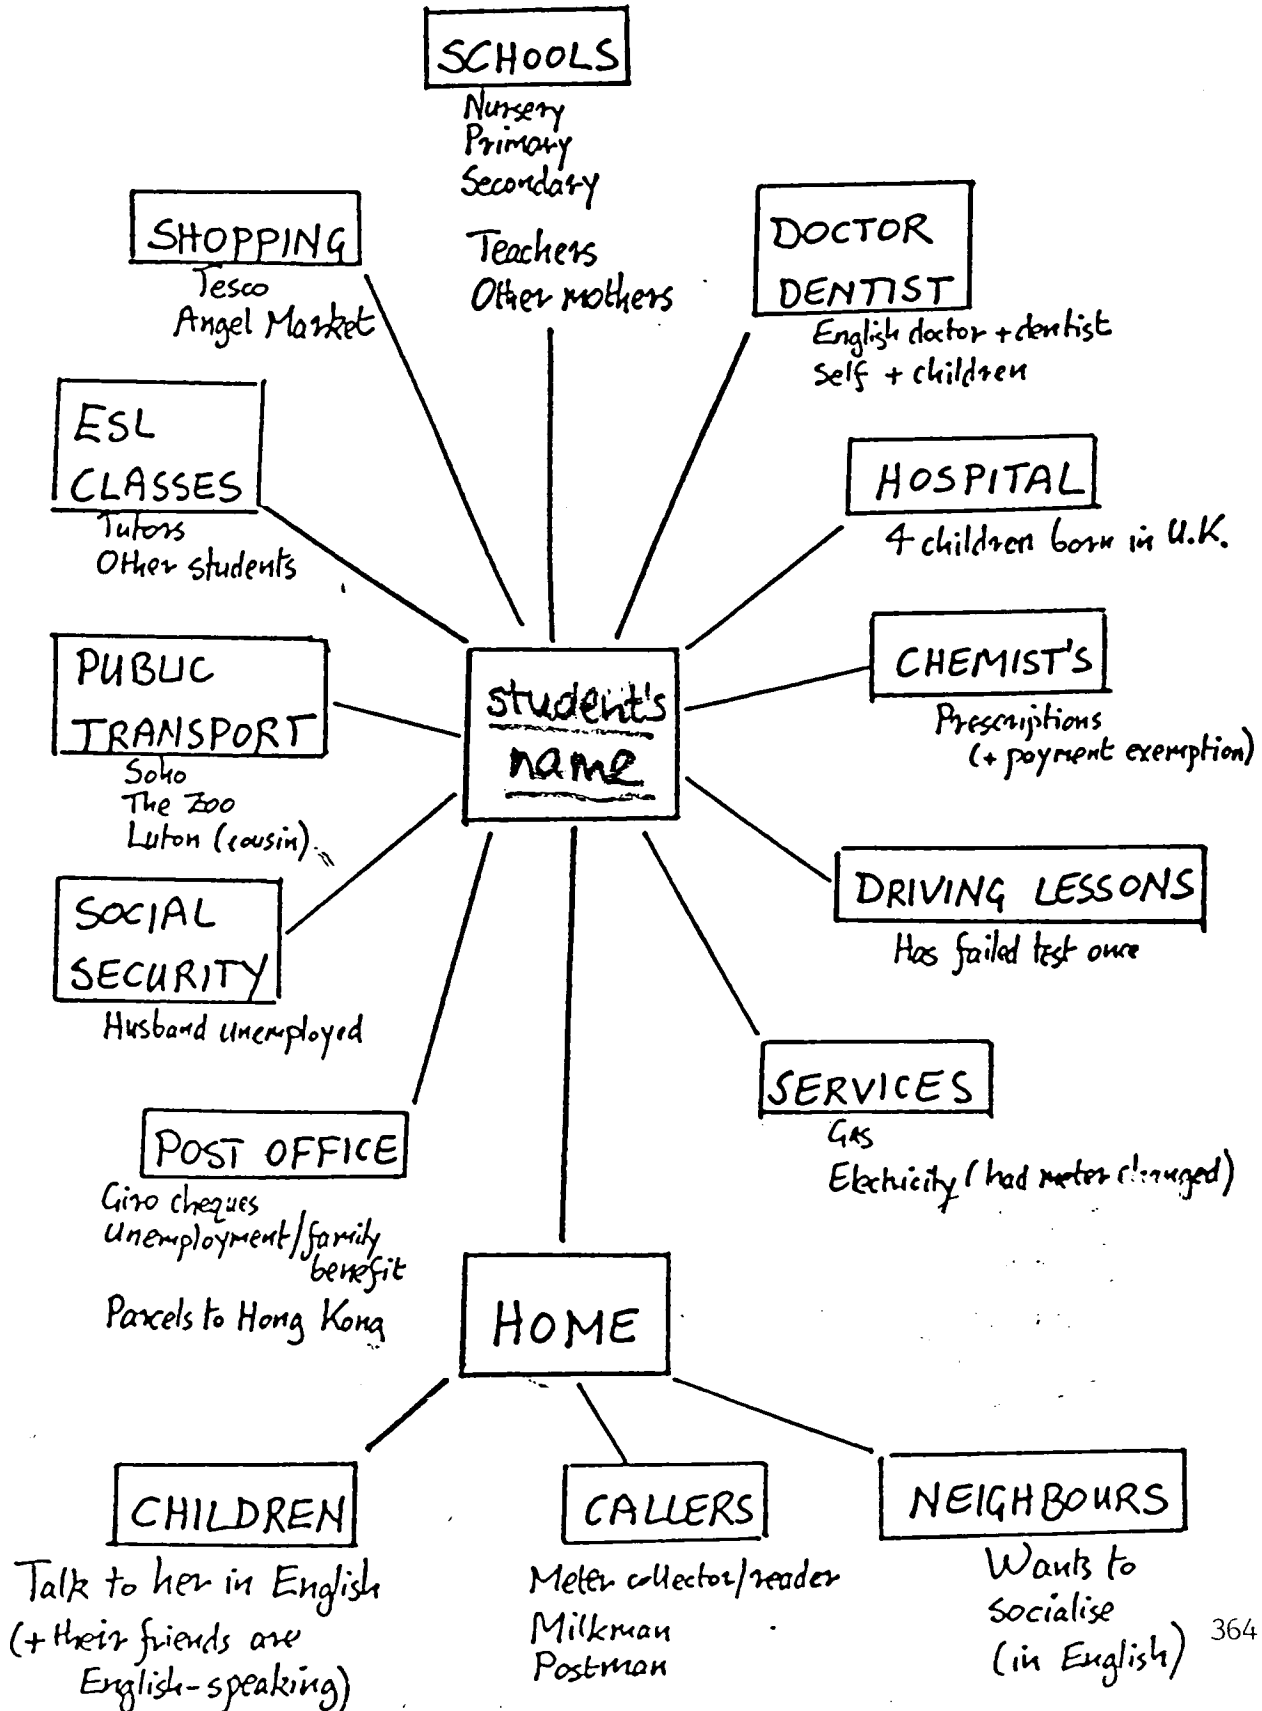 SCHOOLS
Nursery
Primary
Secondary
Teachers
Other mothers
SHOPPING
Tesco
Angel Market
DOCTOR
DENTIST
English doctor + dentist
Self + children
ESL
CLASSES
Tutors
Other students
HOSPITAL
4 children born in U.K.
PUBLIC
TRANSPORT
Soho
The Zoo
Luton (cousin)
student's
name
CHEMIST'S
Prescriptions
(+ payment exemption)
SOCIAL
SECURITY
Husband unemployed
DRIVING LESSONS
Has failed test once
POST OFFICE
Giro cheques
Unemployment/family
benefit
Parcels to Hong Kong
SERVICES
Gas
Electricity (had meter changed)
HOME
CHILDREN
Talk to her in English
(+ their friends are
English-speaking)
CALLERS
Meter collector/reader
Milkman
Postman
NEIGHBOURS
Wants to
socialise
(in English)
364